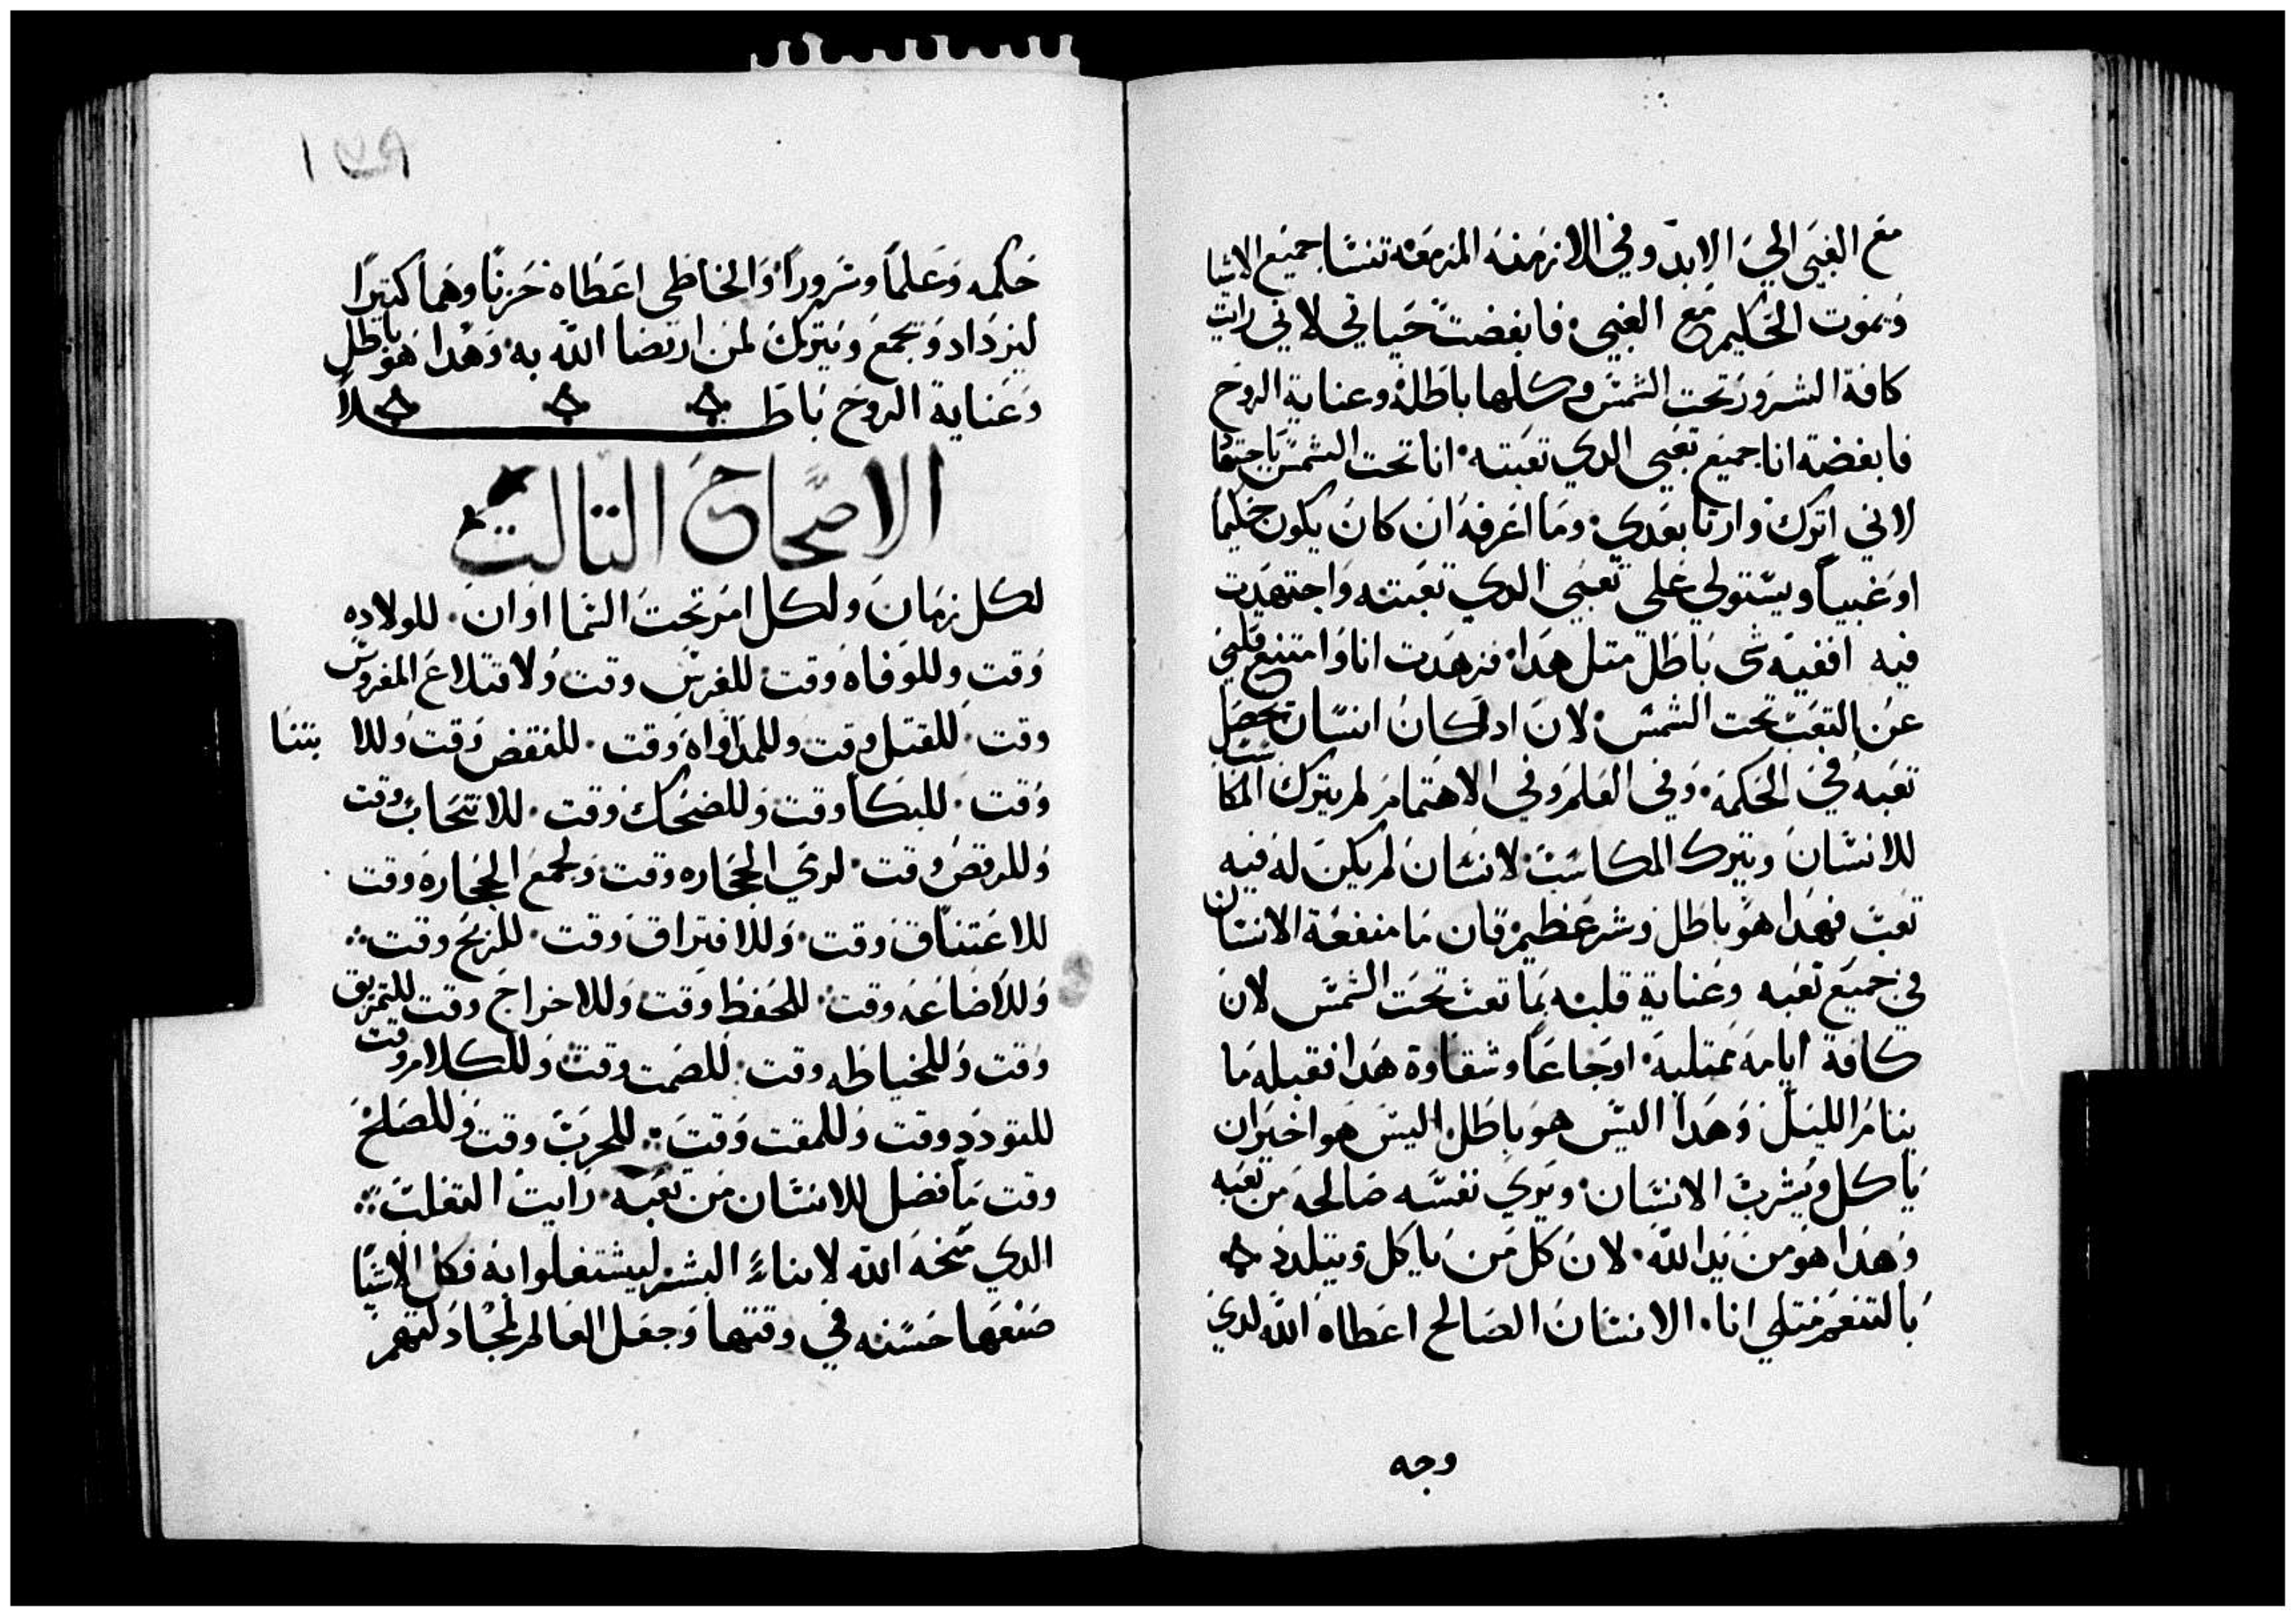 مع الغبي الي الابد وفي الازمنه المزمعه تنسا جميع الاشيا
ويموت الحكيم مع الغبي فابغضت حياتي لاني رايت
كافة الشرور تحت الشمس وكلها باطله وعناية الروح
فابغضة انا جميع تعبي الدي تعبته انا تحت الشمس باجتهاد
لاني اترك وارتا بعدي وما اعرفه ان كان يكون حكيما
او غبيا ويستولي علي تعبي الدي تعبته واجتهدت
فيه افقيه شي باطل متل هدا فزهدت انا وامتنع قلبي
عن التعب تحت الشمس لان اد كان انسان تحصل
تعبه في الحكمه وفي العلم وفي الاهتمام لم يترك المكاسب
للانسان ويترك المكاسب لانسان لم يكن له فيه
تعب فهدا هو باطل وشر عظيم فان ما منفعة الانسان
في جميع تعبه وعناية قلبه بما تعب تحت الشمس لان
كافة ايامه ممتليه اوجاعا وشقاوة هدا فقبله ما
ينام الليل وهدا اليس هو باطل اليس هو اخير ان
ياكل ويشرب الانسان ويري نفسه صالحه من تعبه
وهدا هو من يد الله لان كل من ياكل ويتلدد
بالتنعم متلي انا الانسان الصالح اعطاه الله لدي
وجه
١٧٩
حكمه وعلما وسرورا والخاطي اعطاه حزنا وهما كتيرا
ليزداد ويجمع ويترك لمن ارتضا الله به وهدا هو باطل
وعناية الروح باطلا
الاصحاح التالت
لكل زمان ولكل امر تحت السما اوان للولاده
وقت وللوفاه وقت للغرس وقت ولاقتلاع المغروس
وقت للقتل وقت وللمداواه وقت للنقض وقت وللابتنا
وقت للبكا وقت وللضحك وقت للانتحاب وقت
وللرقص وقت لري الحجاره وقت ولجمع الحجاره وقت
للاعتناق وقت وللافتراق وقت للربح وقت
وللاضاعه وقت للحفظ وقت وللاخراج وقت للتمزيق
وقت وللخياطه وقت للصمت وقت وللكلام وقت
للتودد وقت وللمقت وقت للحرب وقت وللصلح
وقت ما فضل للانسان من تعبه رايت التغلب
الدي منحه الله لابناء البشر ليشتغلوا به فكل الاشيا
صنعها حسنه في وقتها وجعل العالم لمجادلتهم